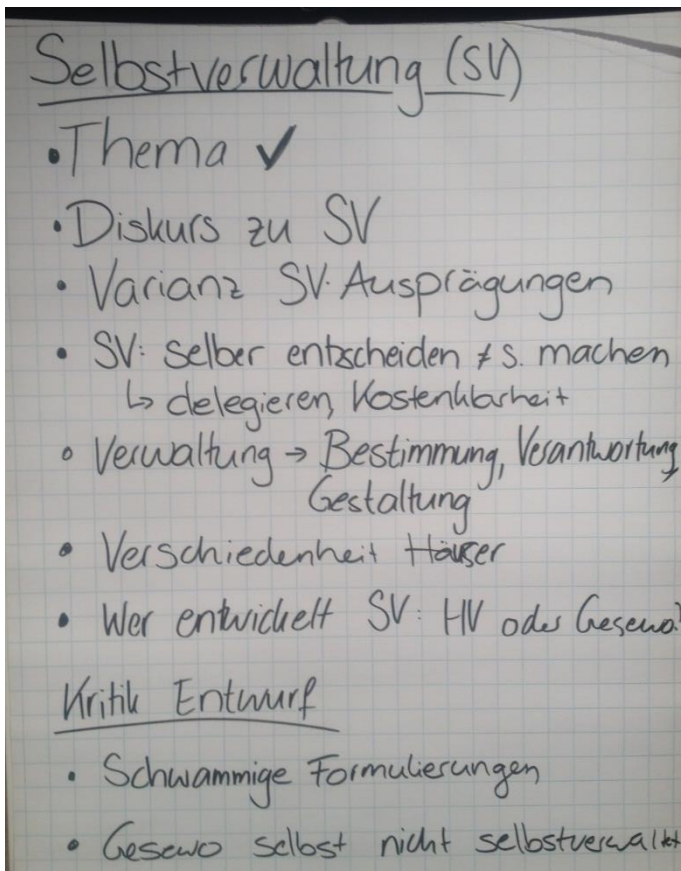 Selbstverwaltung (SV)
• Thema ✔
• Diskurs zu SV
• Varianz SV-Ausprägungen
• SV: Selber entscheiden ≠ s. machen
↳ delegieren, Kostenklarheit
• Verwaltung → Bestimmung, Verantwortung,
Gestaltung
• Verschiedenheit Häuser
• Wer entwickelt SV: HV oder Gesewo?
Kritik Entwurf
• Schwammige Formulierungen
• Gesewo selbst nicht selbstverwaltet